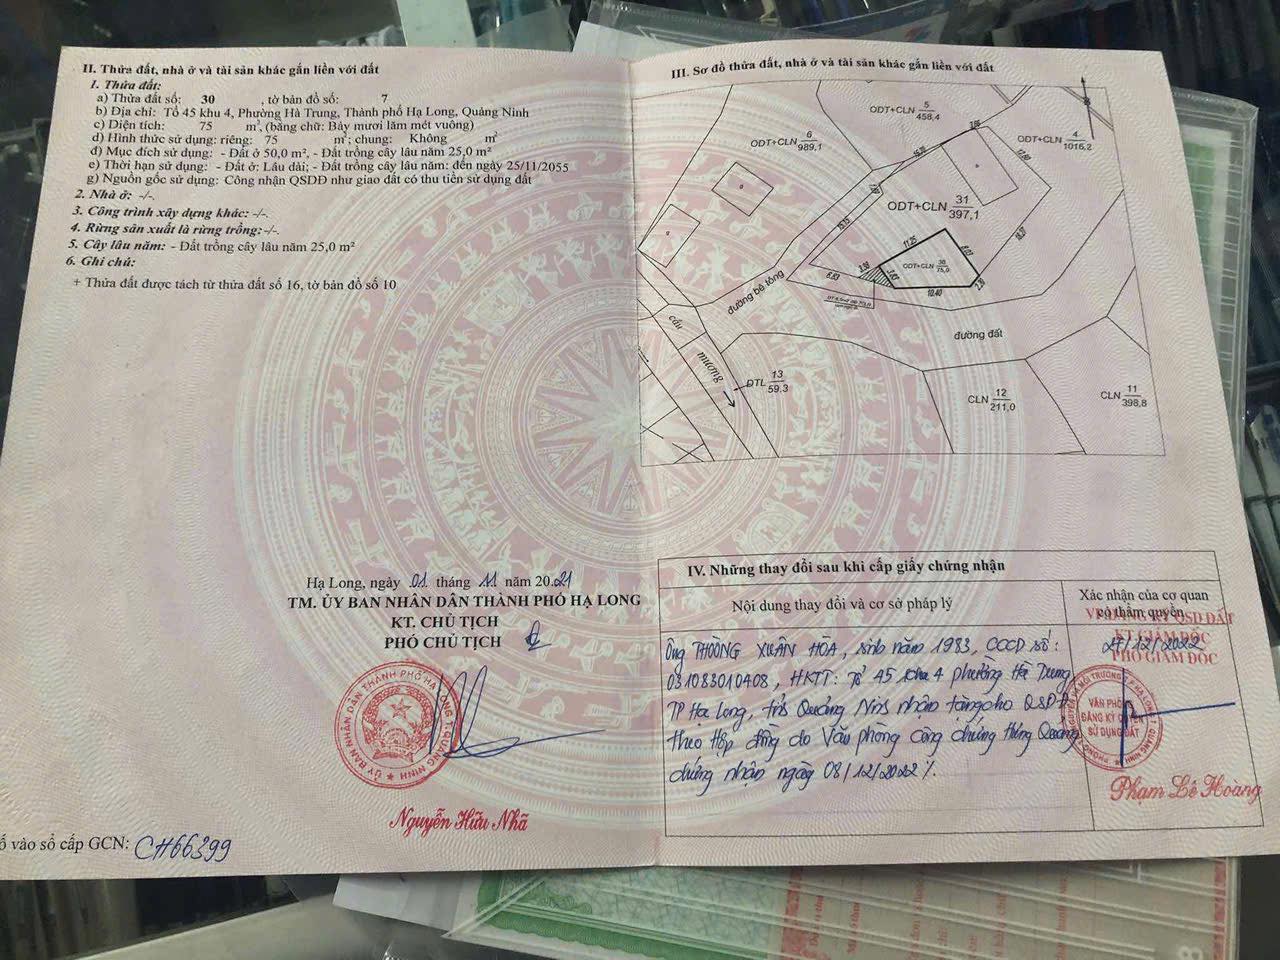 II. Thửa đất, nhà ở và tài sản khác gắn liền với đất
1. Thửa đất:
a) Thửa đất số: 30 , tờ bản đồ số: 7
b) Địa chỉ: Tổ 45 khu 4, Phường Hà Trung, Thành phố Hạ Long, Quảng Ninh
c) Diện tích: 75 m², (bằng chữ: Bảy mươi lăm mét vuông)
d) Hình thức sử dụng: riêng: 75 m²; chung: Không m²
đ) Mục đích sử dụng: - Đất ở 50,0 m², - Đất trồng cây lâu năm 25,0 m²
e) Thời hạn sử dụng: - Đất ở: Lâu dài; - Đất trồng cây lâu năm: đến ngày 25/11/2055
g) Nguồn gốc sử dụng: Công nhận QSDĐ như giao đất có thu tiền sử dụng đất
2. Nhà ở: -/-.
3. Công trình xây dựng khác: -/-.
4. Rừng sản xuất là rừng trồng:-/-.
5. Cây lâu năm: - Đất trồng cây lâu năm 25,0 m²
6. Ghi chú:
+ Thửa đất được tách từ thửa đất số 16, tờ bản đồ số 10
Hạ Long, ngày 01 tháng 11 năm 2021
TM. ỦY BAN NHÂN DÂN THÀNH PHỐ HẠ LONG
KT. CHỦ TỊCH
PHÓ CHỦ TỊCH
ỦY BAN NHÂN DÂN THÀNH PHỐ HẠ LONG
QUẢNG NINH
Nguyễn Hữu Nhã
ố vào sổ cấp GCN: CH66399
III. Sơ đồ thửa đất, nhà ở và tài sản khác gắn liền với đất
ODT+CLN 5 458,4
ODT+CLN 6 989,1
ODT+CLN 4 1016,2
ODT+CLN 31 397,1
11.25
ODT+CLN 30 75,0
6.83
10.40
đường bê tông
đường đất
cầu
mương
DTL 13 59.3
CLN 12 211,0
CLN 11 398,8
IV. Những thay đổi sau khi cấp giấy chứng nhận
Nội dung thay đổi và cơ sở pháp lý
Xác nhận của cơ quan
có thẩm quyền
Ông THOÒNG XUÂN HÒA, sinh năm 1983, CCCD số:
031083010408, HKTT: Tổ 45 khu 4 phường Hà Trung,
TP Hạ Long, tỉnh Quảng Ninh nhận tặng cho QSDĐ
theo Hợp đồng do Văn phòng công chứng Hùng Quang
chứng nhận ngày 08/12/2022%.
KT. GIÁM ĐỐC
27/12/2022
PHÓ GIÁM ĐỐC
VĂN PHÒNG
ĐĂNG KÝ QUYỀN
SỬ DỤNG ĐẤT
Phạm Lê Hoàng